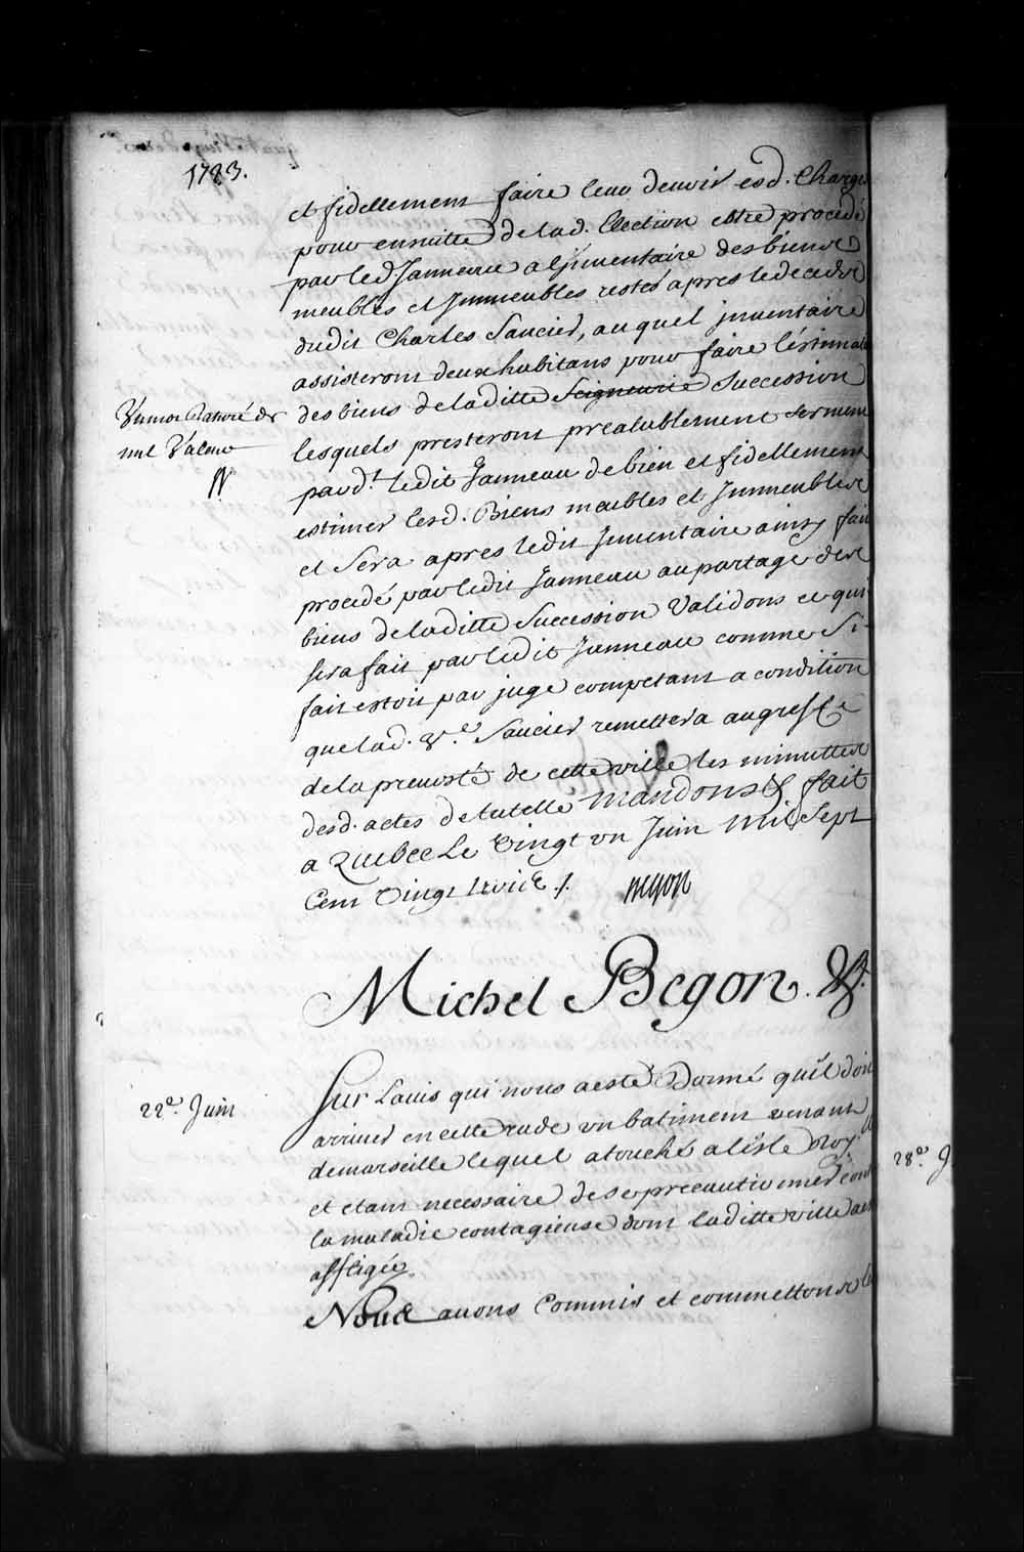 1723.
et fidellement faire leur devoir esd. Charges
pour ensuitte de lad. Election estre procedé
par led. Janneau a l'jnventaire des biens
meubles et Jmmeubles restés apres le deceds
dudit Charles Saucier, auquel jnventaire
assisteront deux habitans pour faire l'éstimation
des biens de laditte Seigneurie Succession
Un mot Raturé de
nul Valeur
lesquels presteront prealablement serment
pard.t ledit Janneau de bien et fidellement
estimer lesd. Biens meubles et Jmmeubles
et Sera apres ledit Jnventaire ainsy fait
procedé par ledit Janneau au partage des
biens de laditte Succession Validons ce qui
sera fait par ledit Janneau comme Si
fait estoit par juge competant a condition
que lad. Ve. Saucier remettera au greffe
de la prevosté de cette ville les minuttes
desd. actes de tutelle Mandons &c fait
a Quebec Le Vingt un Juin Mil Sept
Cent Vingt trois ./. Begon
Michel Begon. &c.
22e. Juin
Sur Lavis qui nous a esté Donné quil doit
arriver en cette rade un batiment venant
de marseille lequel a touché a l'isle Roy.
et etant necessaire de se precautionner contre
la maladie contagieuse dont laditte ville a esté
affligée
Nous avons Commis et commettons le
28e. J